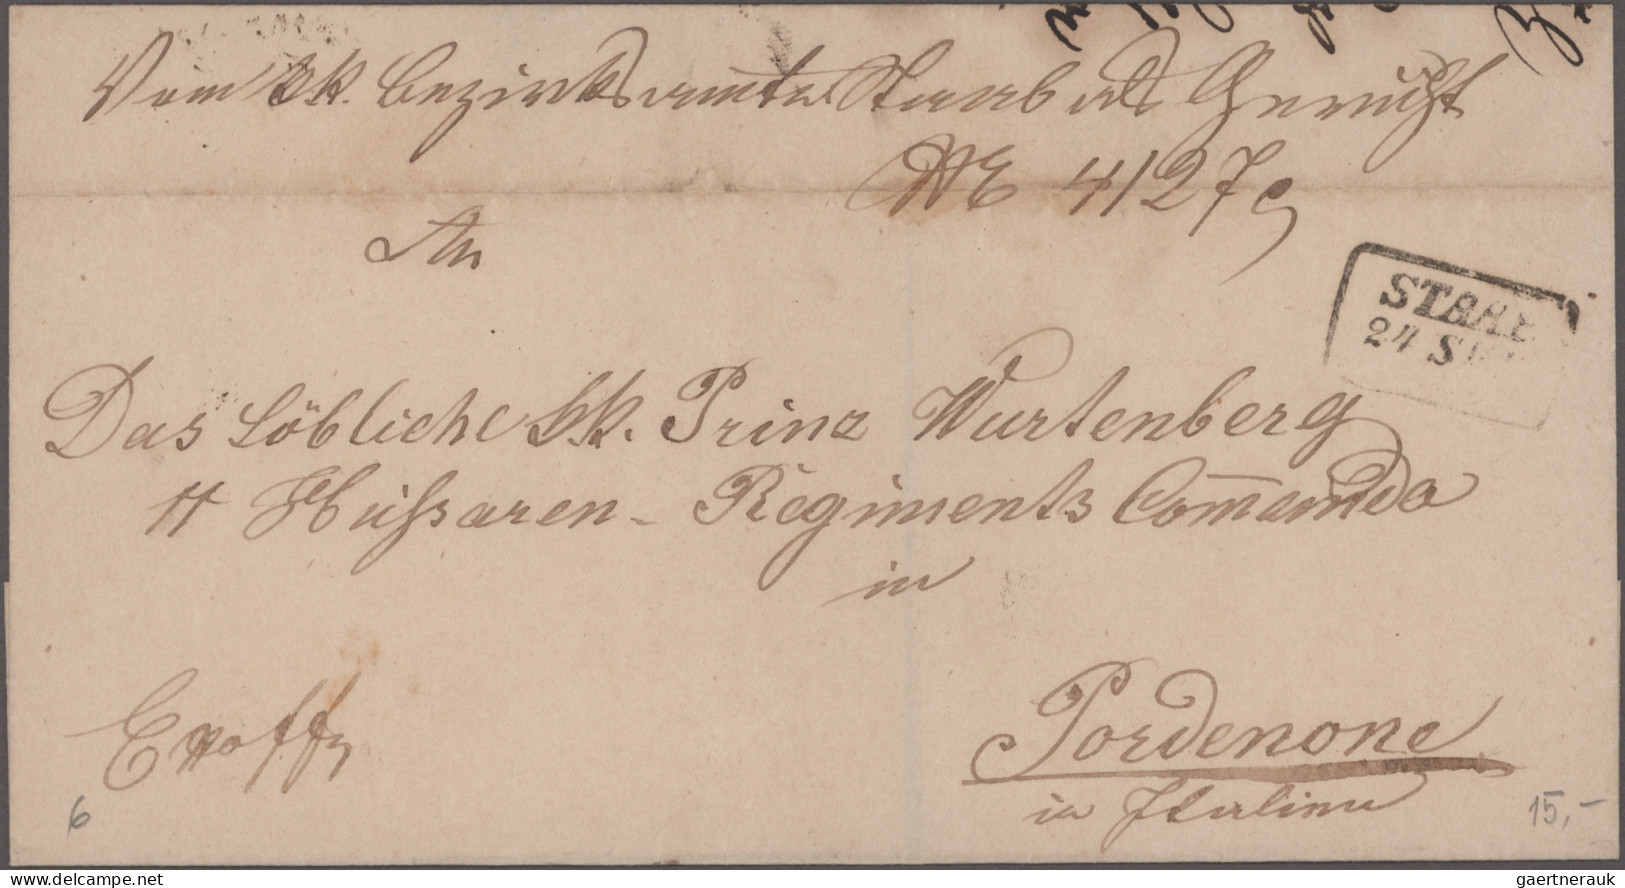 Vom kk. Bezirksamte Staab als Gericht
NE 4127
An
STAAB
24 S
Das Löbliche kk. Prinz Würtenberg
11 Hußaren - Regiments Com̄ando
in
Ex offo
Pordenone
in Italien
6
15,-
delcampe.net
gaertnerauk